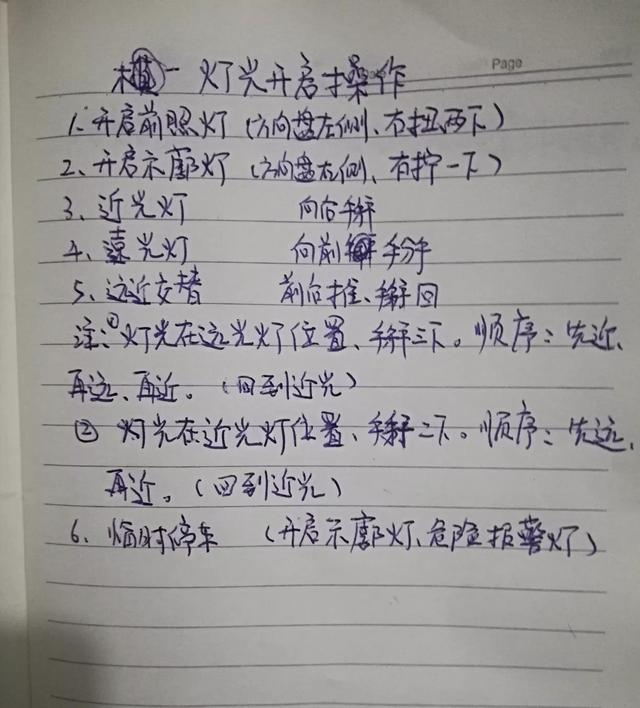 Page
一 灯光开启操作
1、开启前照灯（方向盘左侧、右扭两下）
2、开启示廓灯（方向盘左侧、右拧一下）
3、近光灯 向后掰
4、远光灯 向前掰
5、远近交替 前后推、掰回
注：①灯光在远光灯位置、掰三下。顺序：先近、
再远、再近。（回到近光）
② 灯光在近光灯位置、掰二下。顺序：先远、
再近。（回到近光）
6、临时停车 （开启示廓灯、危险报警灯）